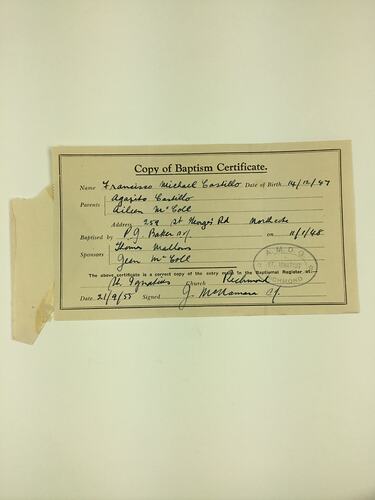 Copy of Baptism Certificate.
Name Francisco Michael Castillo Date of Birth 14/12/47
Parents Agapito Castillo
Aileen McColl
Address 259 St Georges Rd Northcote
Baptised by P. J. Baker S.J. on 11/1/48
Sponsors Thomas Mallon
Jean McColl
The above certificate is a correct copy of the entry in the Baptismal Register at:—
St. Ignatius Church Richmond
Date 21/9/55 Signed J. McNamara S.J.
A.M.D.G.
ST. IGNATIUS
RICHMOND